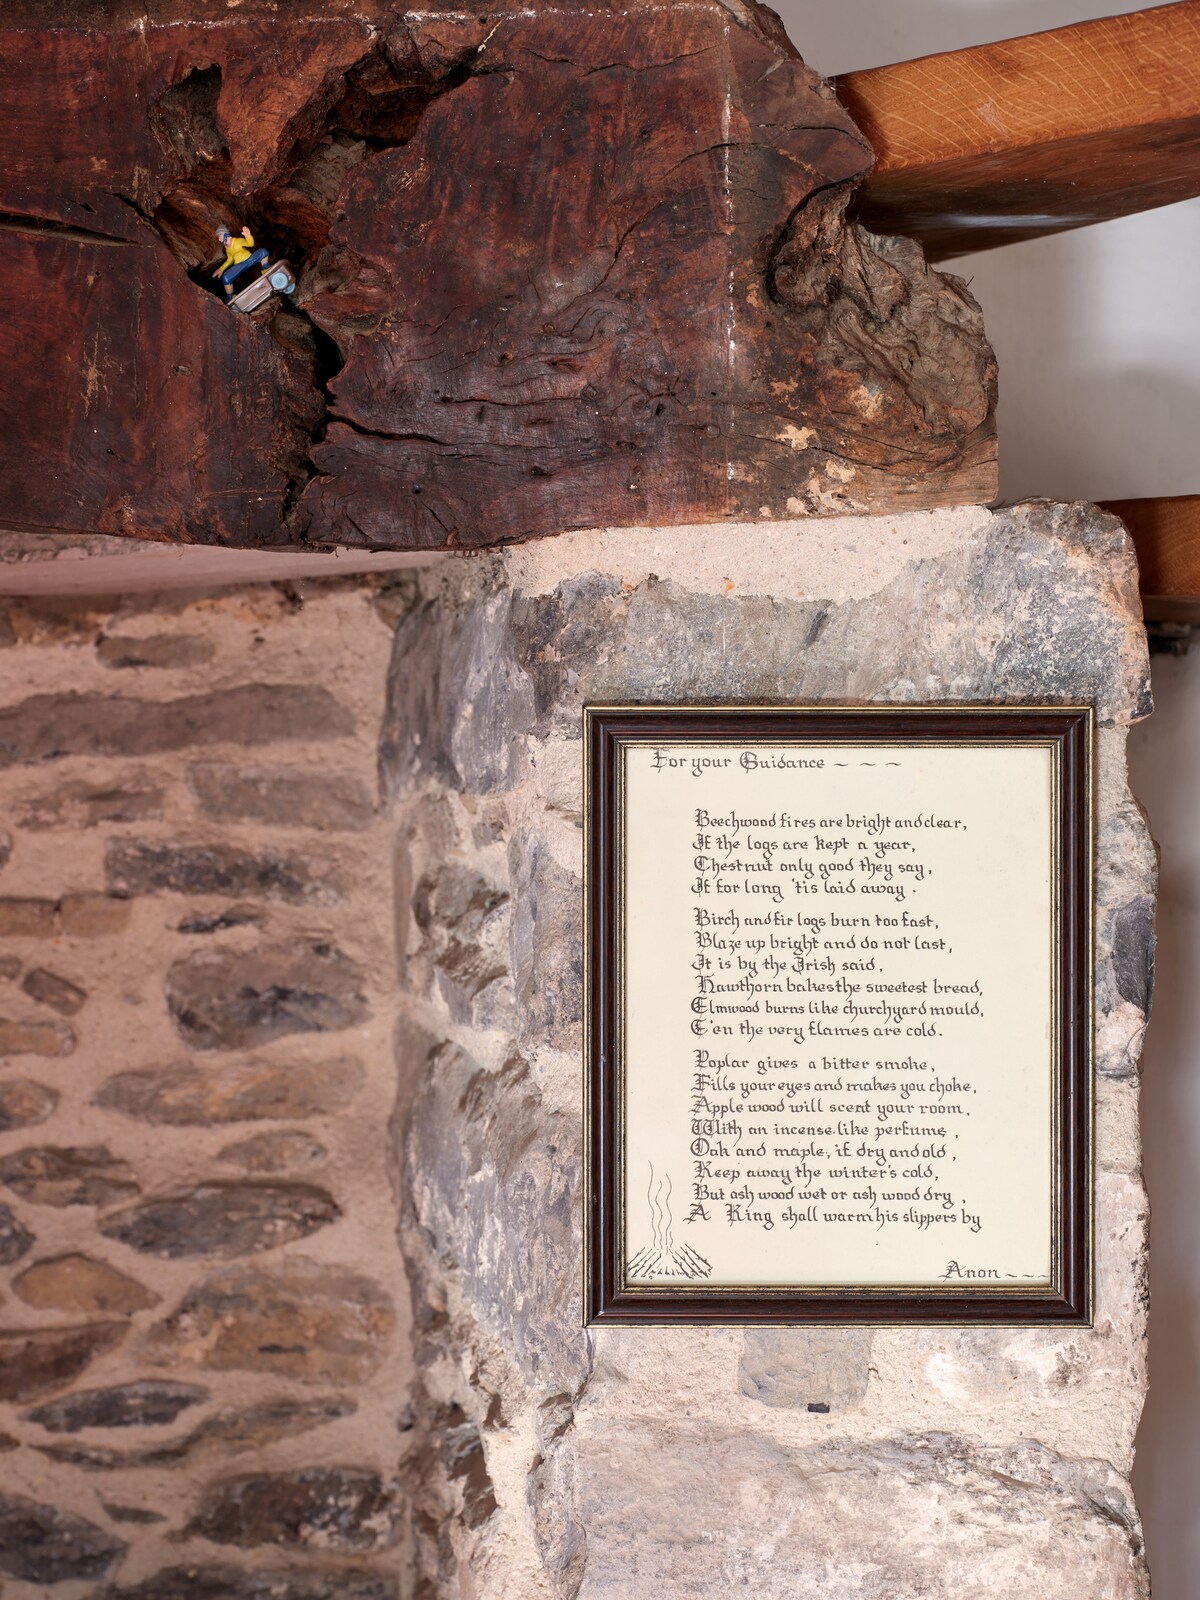 For your Guidance ~ ~ ~
Beechwood fires are bright and clear,
If the logs are kept a year,
Chestnut only good they say,
If for long 'tis laid away.
Birch and fir logs burn too fast,
Blaze up bright and do not last,
It is by the Irish said,
Hawthorn bakes the sweetest bread,
Elmwood burns like churchyard mould,
E'en the very flames are cold.
Poplar gives a bitter smoke,
Fills your eyes and makes you choke,
Apple wood will scent your room,
With an incense like perfume,
Oak and maple, if dry and old,
Keep away the winter's cold,
But ash wood wet or ash wood dry,
A King shall warm his slippers by
Anon ~ ~ ~